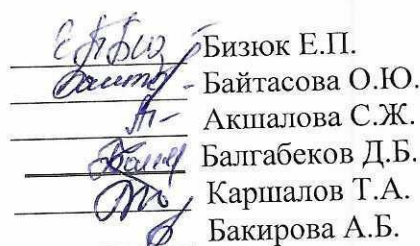 Бизюк Е.П.
Байтасова О.Ю.
Акшалова С.Ж.
Балгабеков Д.Б.
Каршалов Т.А.
Бакирова А.Б.